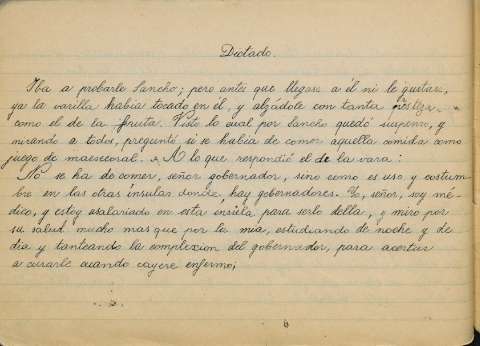 Dictado.
Iba a probarle Sancho; pero antes que llegara a él ni le gustara,
ya la varilla habia tocado en el, y alzádole con tanta
como el de la fruta. Visto lo cual por Sancho quedó suspenso, y
mirando a todos, preguntó si se habia de comer aquella comida como
juego de maesecoral. A lo que respondió el de la vara:
No se ha de comer, señor gobernador, sino como es uso y costum-
bre en las otras ínsulas donde hay gobernadores. Yo, señor, soy mé-
dico, y estoy asalariado en esta ínsula para serlo della, y miro por
su salud mucho mas que por la mia, estudiando de noche y de
dia y tanteando la complexion del gobernador, para acertar
a curarle cuando cayere enfermo;